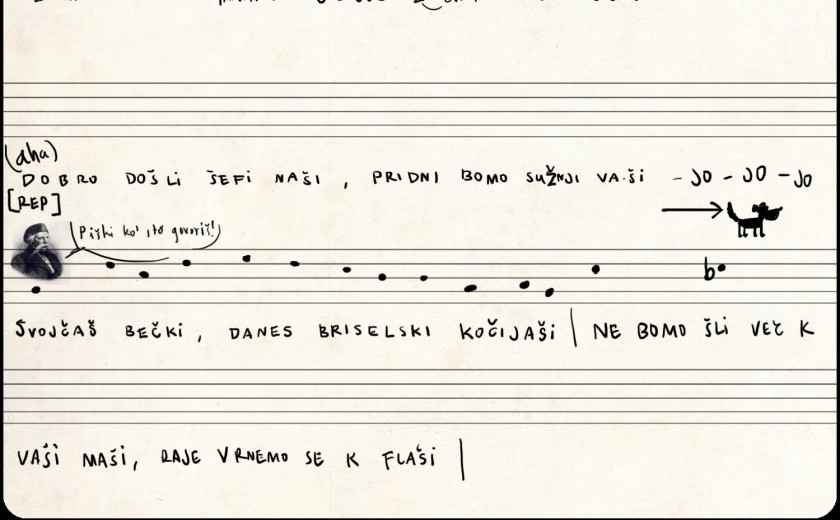 (aha)
DOBRO DOŠLI ŠEFI NAŠI, PRIDNI BOMO SUŽNJI VAŠI - JO - JO - JO
[REP]
Piški ko' što govoriš!
ŠVOJČAŠ BEČKI, DANES BRISELSKI KOČIJAŠI | NE BOMO ŠLI VEČ K
b
VAŠI MAŠI, RAJE VRNEMO SE K FLAŠI |